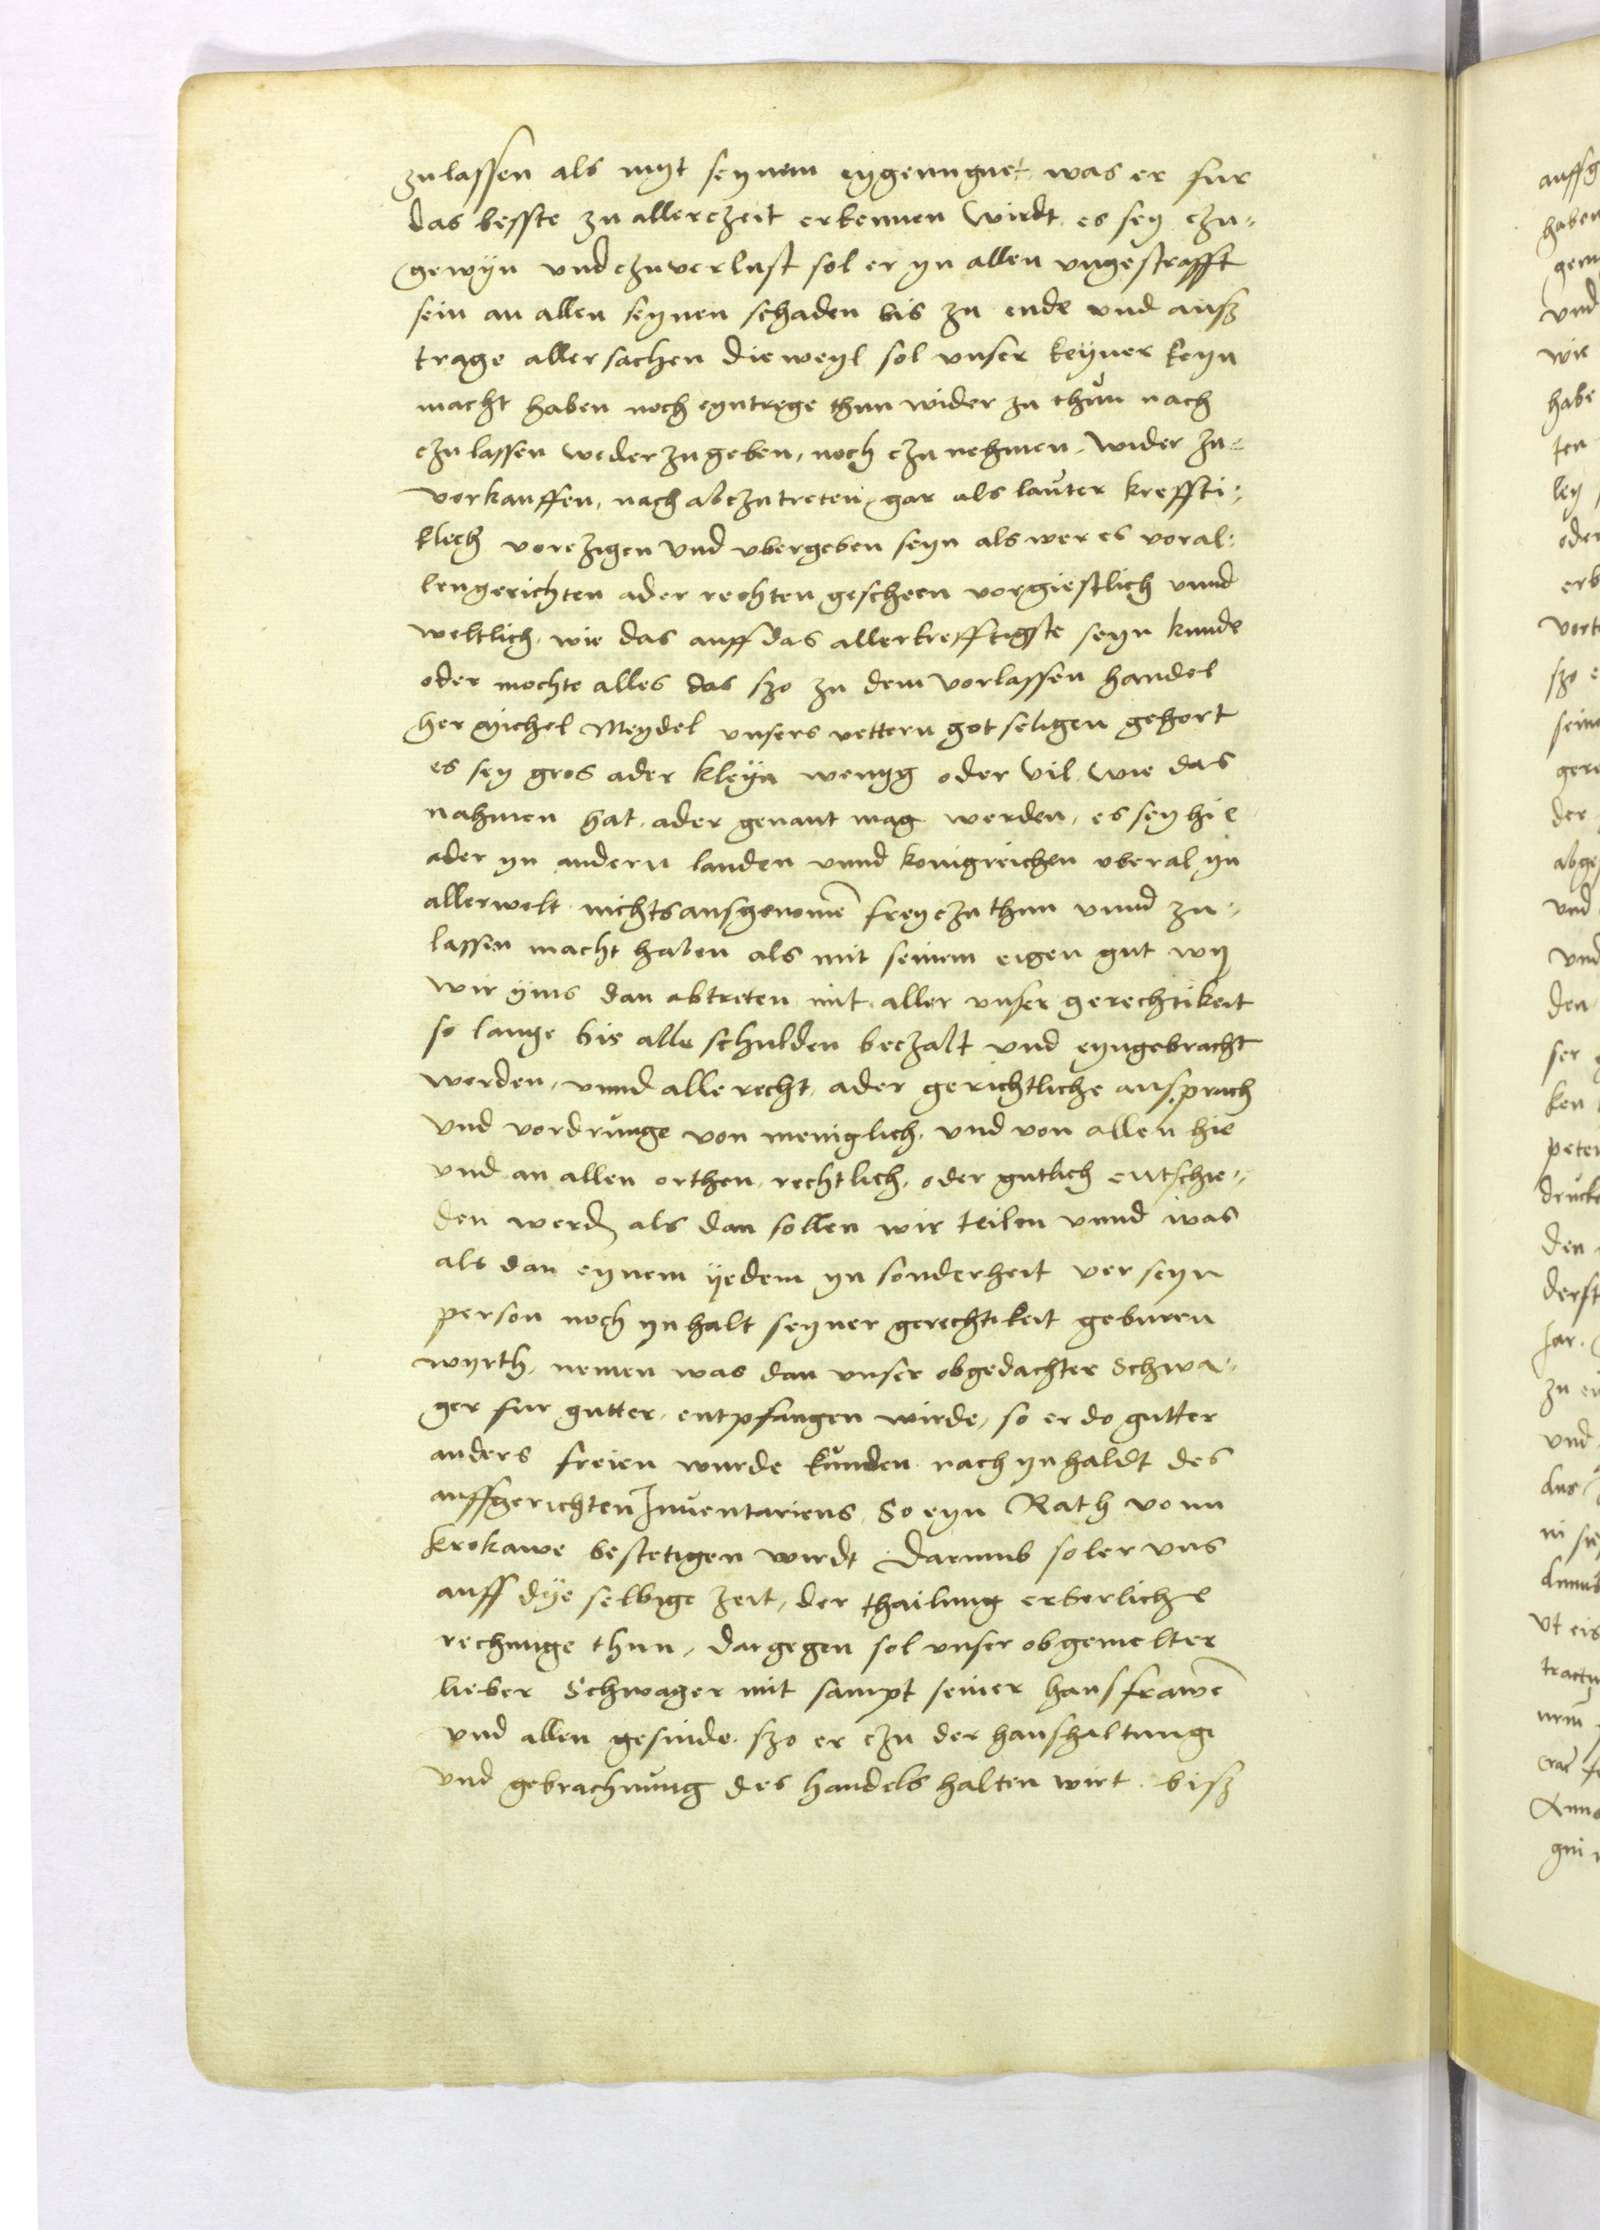 zulassen als myt seynem eygenngnet was er fur
das besste zu allerczeit erkennen wirdt es sey czu-
gewyn und czuverlust sol er yn allen ungestrafft
sein an allen seynen schaden bis zu ende und ausz
trage aller sachen die weyl sol unser keyner keyn
macht haben noch eyntrege thun wider zu thun nach
czu lassen weder zu geben, noch czu nehmen, wider zu-
vorkauffen, nach abczutreten, gar als lauter kreffti-
klech vorczigen und ubergeben seyn als wer es voral-
lengerichten ader rechten gescheen vorgiestlich unnd
weltlich, wie das auff das allerkrefftigste seyn kunde
oder mochte alles das szo zu dem vorlassen handel
her Michel Meydel unsers vettern got seligen gehort
es sey gros ader kleyn wenyg oder vil wie das
nahmen hat ader genant mag werden, es sey hie
ader yn andern landen unnd konigreichen uberal yn
allerwelt nichts ausgenomē frey czu thun unnd zu-
lassen macht haben als mit seinem eigen gut wy
wir yms dan abtreten mit aller unser gerechtikeit
so lange bis alle schulden beczalt und eyngebracht
werden, unnd alle recht ader gerichtliche ansprach
und vordrunge von meniglich, und von allen hie
und an allen orthen, rechtlich, oder gutlich entschie-
den werd als dan sollen wir teilen unnd was
als dan eynem yedem yn sonderheit ver seyn
person noch ynhalt seyner gerechtikeit geburen
wyrth, nemen was dan unser obgedachter Schwa-
ger fur gutter, entpfangen wirde, so er do gutter
anders freien wurde kunden nach ynhaldt des
auffgerichten Inventariens So eyn Rath vonn
krokawe bestetigen wirdt Darumb sol er uns
auff dye selbige zeit, der thailung erberliche
rechnuge thun, dargegen sol unser obgemelter
lieber Schwager mit sampt seiner hausfrawē
und allen gesinde szo er czu der haushaltunge
und gebrachnung des handels halten wirt bisz